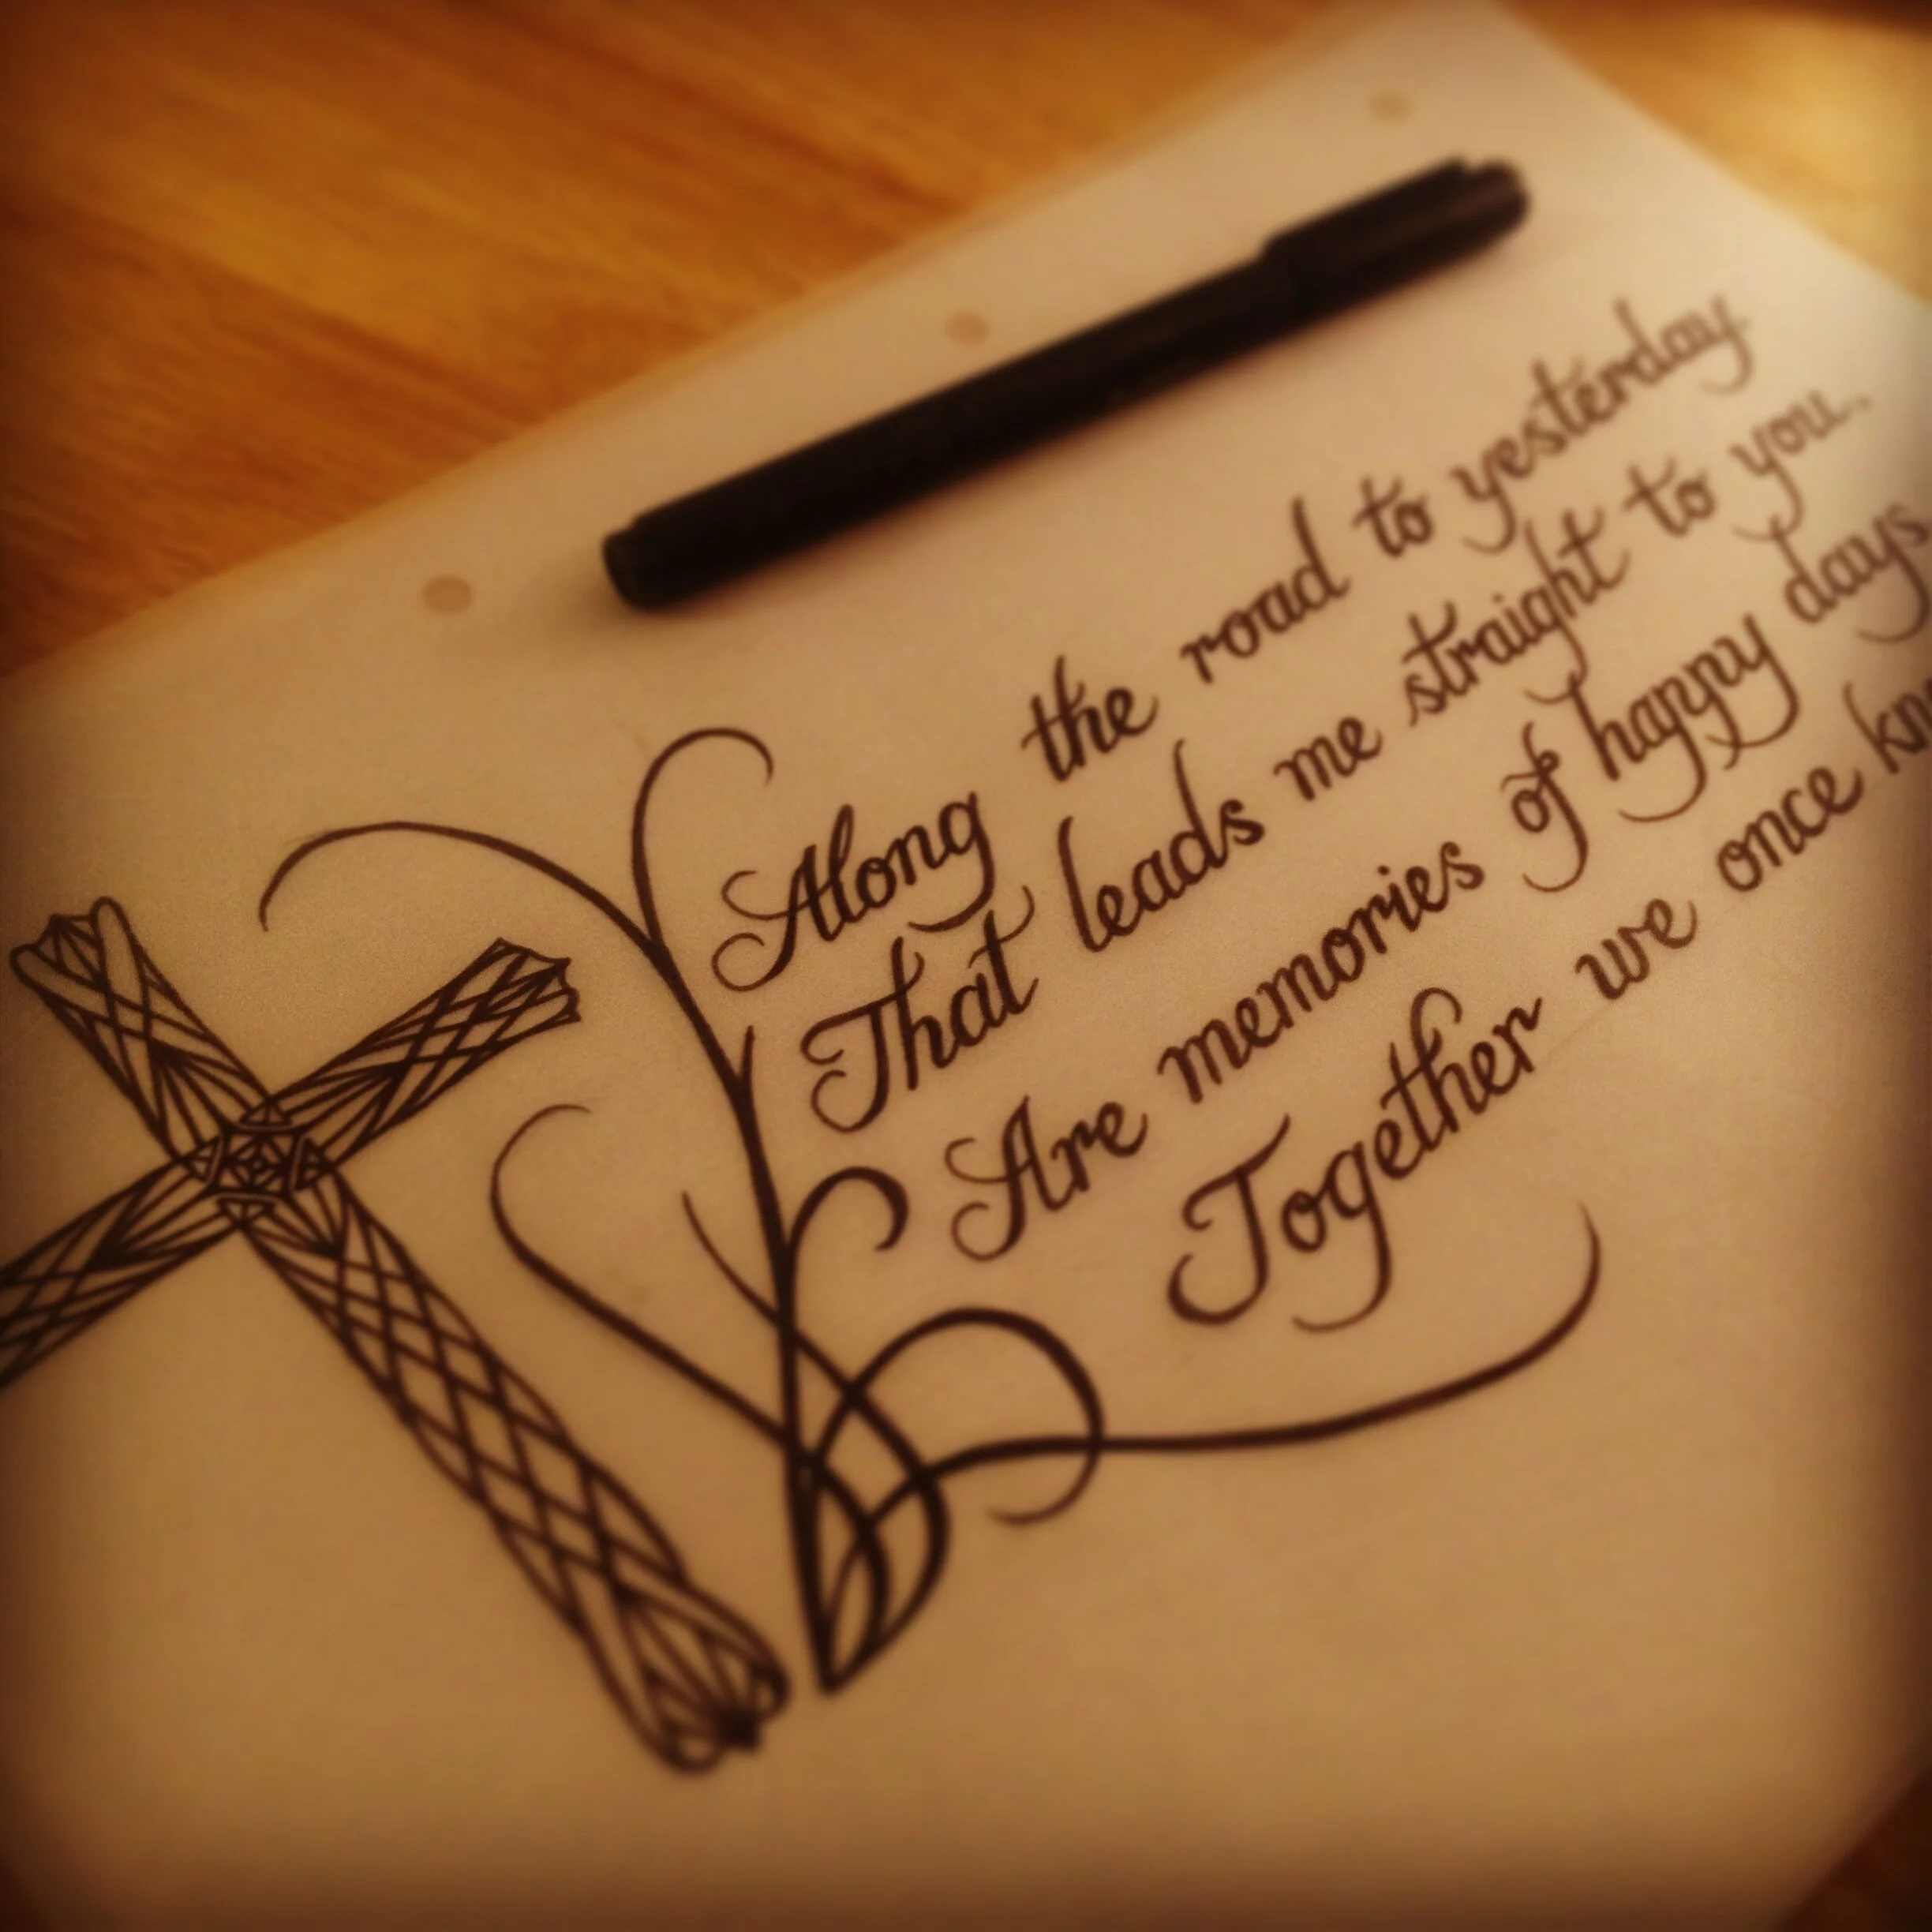 Along the road to yesterday
That leads me straight to you.
Are memories of happy days
Together we once kn